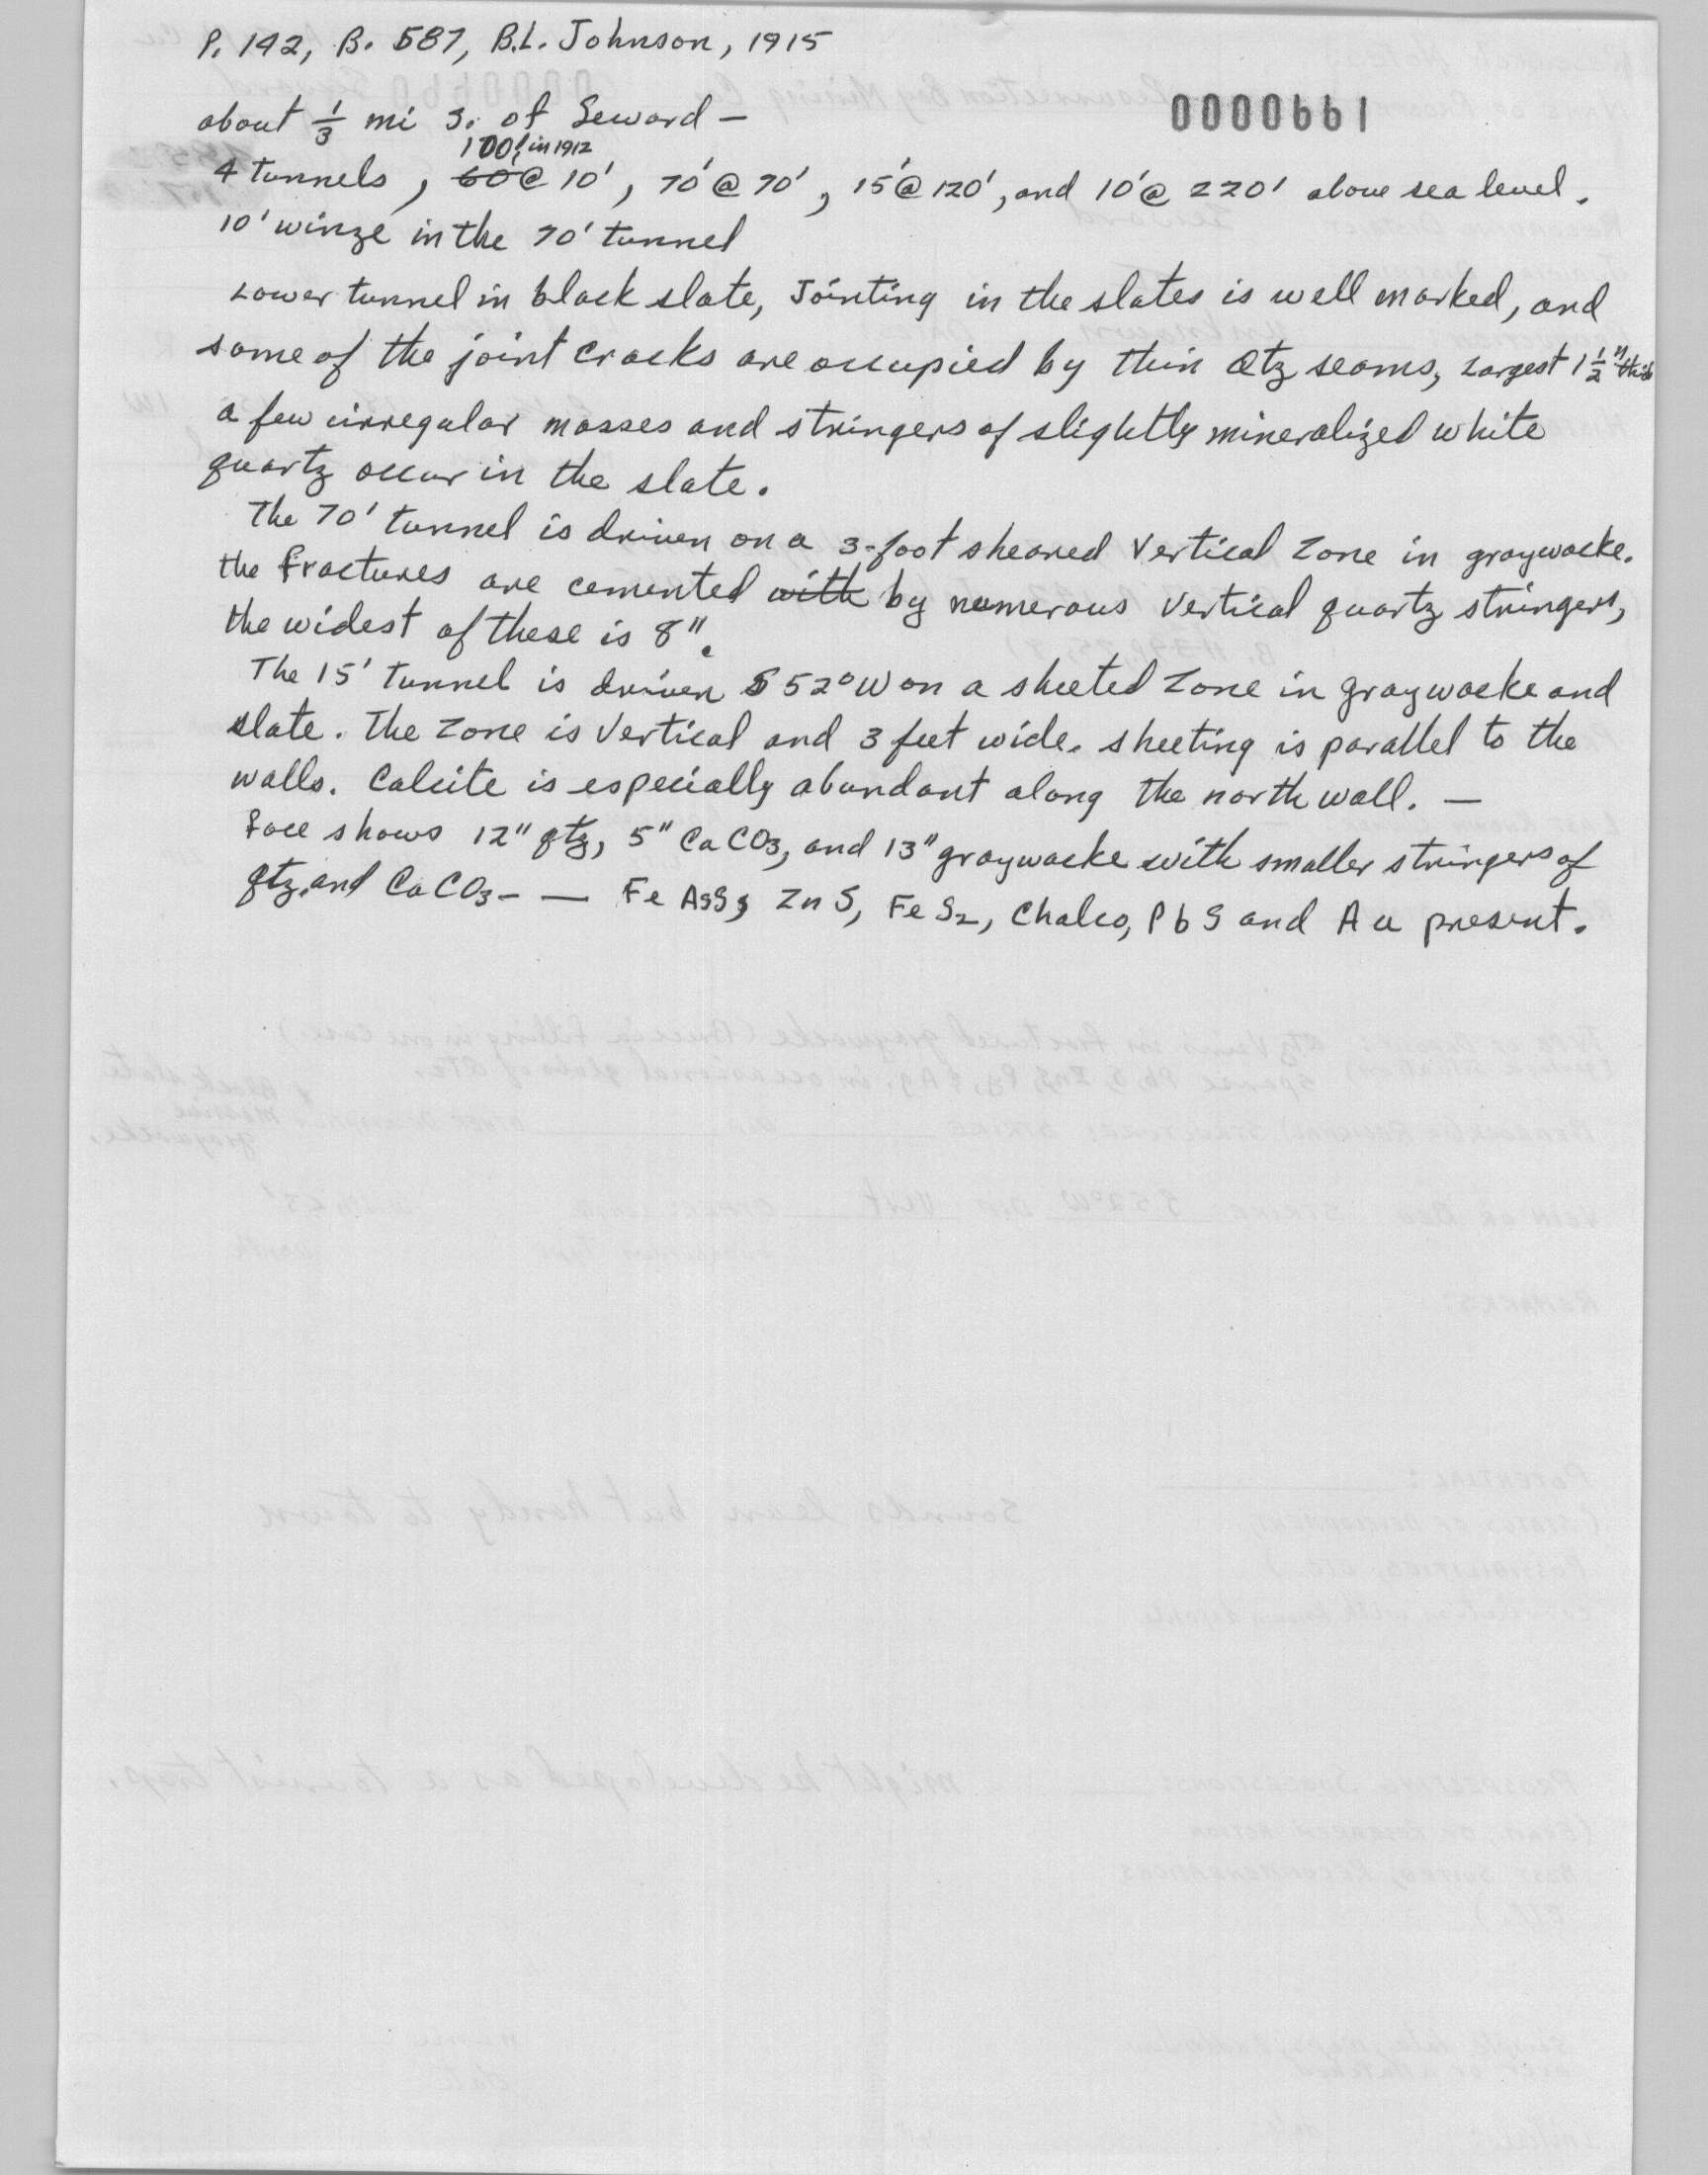 P. 142, B. 587, B.L. Johnson, 1915
0000661
about 1/3 mi S. of Seward —
100' in 1912
4 tunnels, 60'@ 10', 70'@ 70', 15'@ 120', and 10'@ 220' above sea level.
10' winze in the 70' tunnel
Lower tunnel in black slate, Jointing in the slates is well marked, and
some of the joint cracks are occupied by thin Qtz seams, Largest 1 1/2" thick
a few irregular masses and stringers of slightly mineralized white
quartz occur in the slate.
The 70' tunnel is driven on a 3-foot sheared Vertical Zone in graywacke.
the fractures are cemented with by numerous Vertical quartz stringers,
the widest of these is 8".
The 15' tunnel is driven S 52° W on a sheeted Zone in graywacke and
slate. The Zone is Vertical and 3 feet wide. sheeting is parallel to the
walls. Calcite is especially abundant along the north wall. —
Face shows 12" qtz, 5" CaCO3, and 13" graywacke with smaller stringers of
qtz. and CaCO3 - — FeAsS, ZnS, FeS2, Chalco, PbS and Au present.
sounds lean but handy to town
might be developed as a tourist trap.